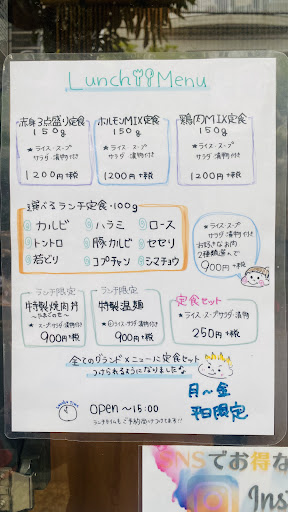 Lunch Menu
赤身3点盛り定食
150g
★ライス・スープ
サラダ・漬物付き
1200円+税
ホルモンMIX定食
150g
★ライス・スープ
サラダ・漬物付き
1200円+税
鶏肉MIX定食
150g
★ライス・スープ
サラダ・漬物付き
1200円+税
選べるランチ定食・100g
カルビ
ハラミ
ロース
トントロ
豚カルビ
セセリ
若どり
コプチャン
シマチョウ
★ライス・スープ
サラダ・漬物付き
お好きなお肉
2種類選んで
900円+税
ランチ限定
特製焼肉丼
★スープサラダ・漬物付
900円+税
ランチ限定
特製温麺
ライス・サラダ・漬物付き
900円+税
定食セット
★ライス・スープサラダ・漬物
250円+税
全てのグランドメニューに定食セット
つけられるようになりましたぁ
月〜金
平日限定
OPEN〜15:00
ランチタイムもご予約受けつけてます!!
SNSでお得な
Ins